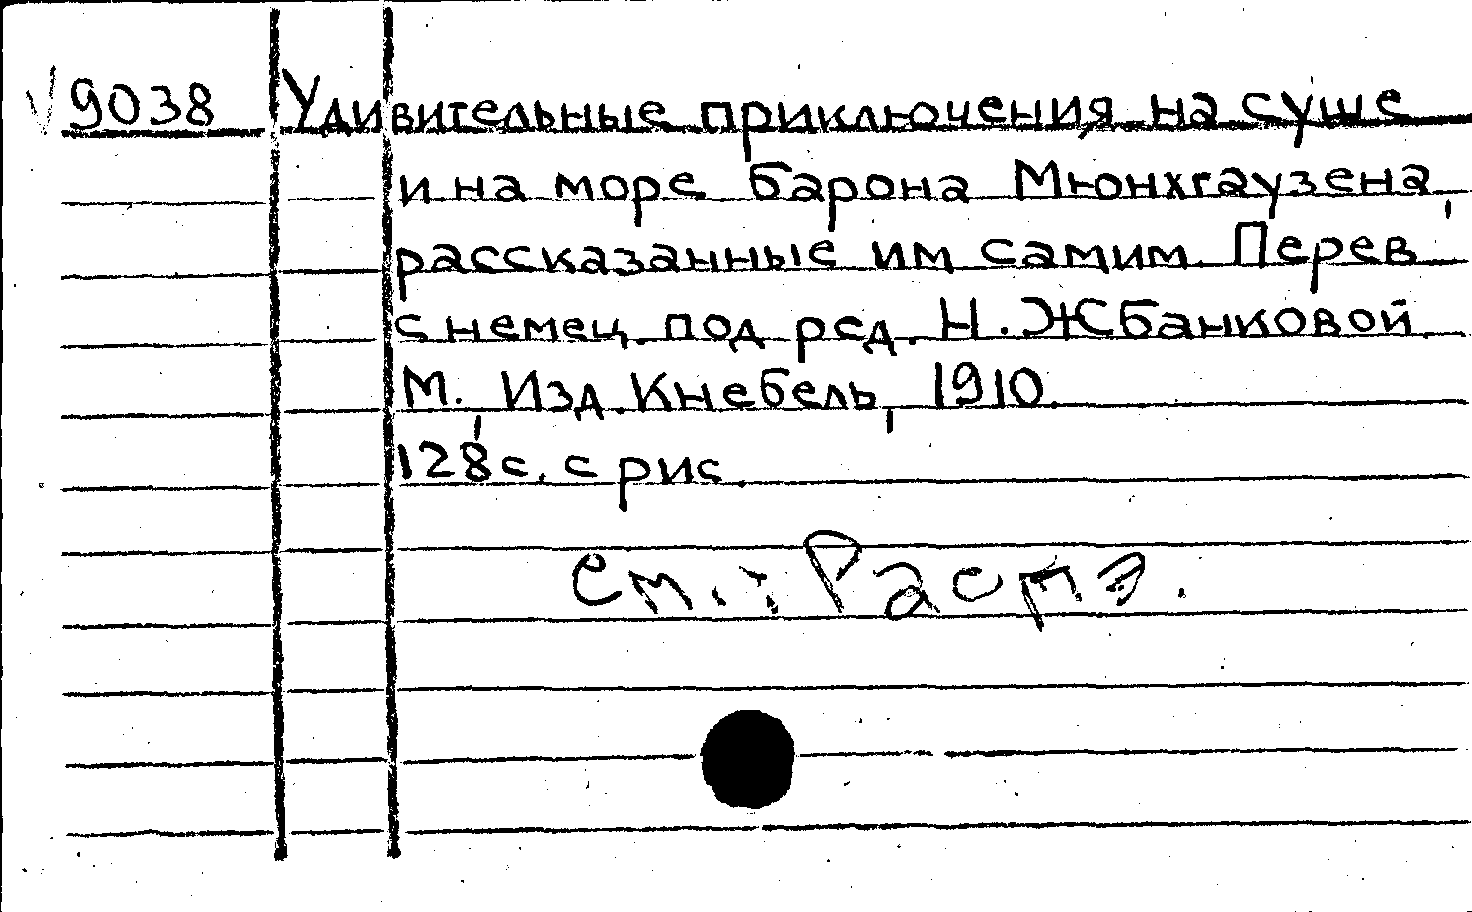 9038 Удивительные приключения на суше
и на море барона Мюнхгаузена,
рассказанные им самим. Перев.
с немец. под ред. Н. Жбанковой
М., Изд. Кнебель, 1910.
128 с. с рис.
см.: